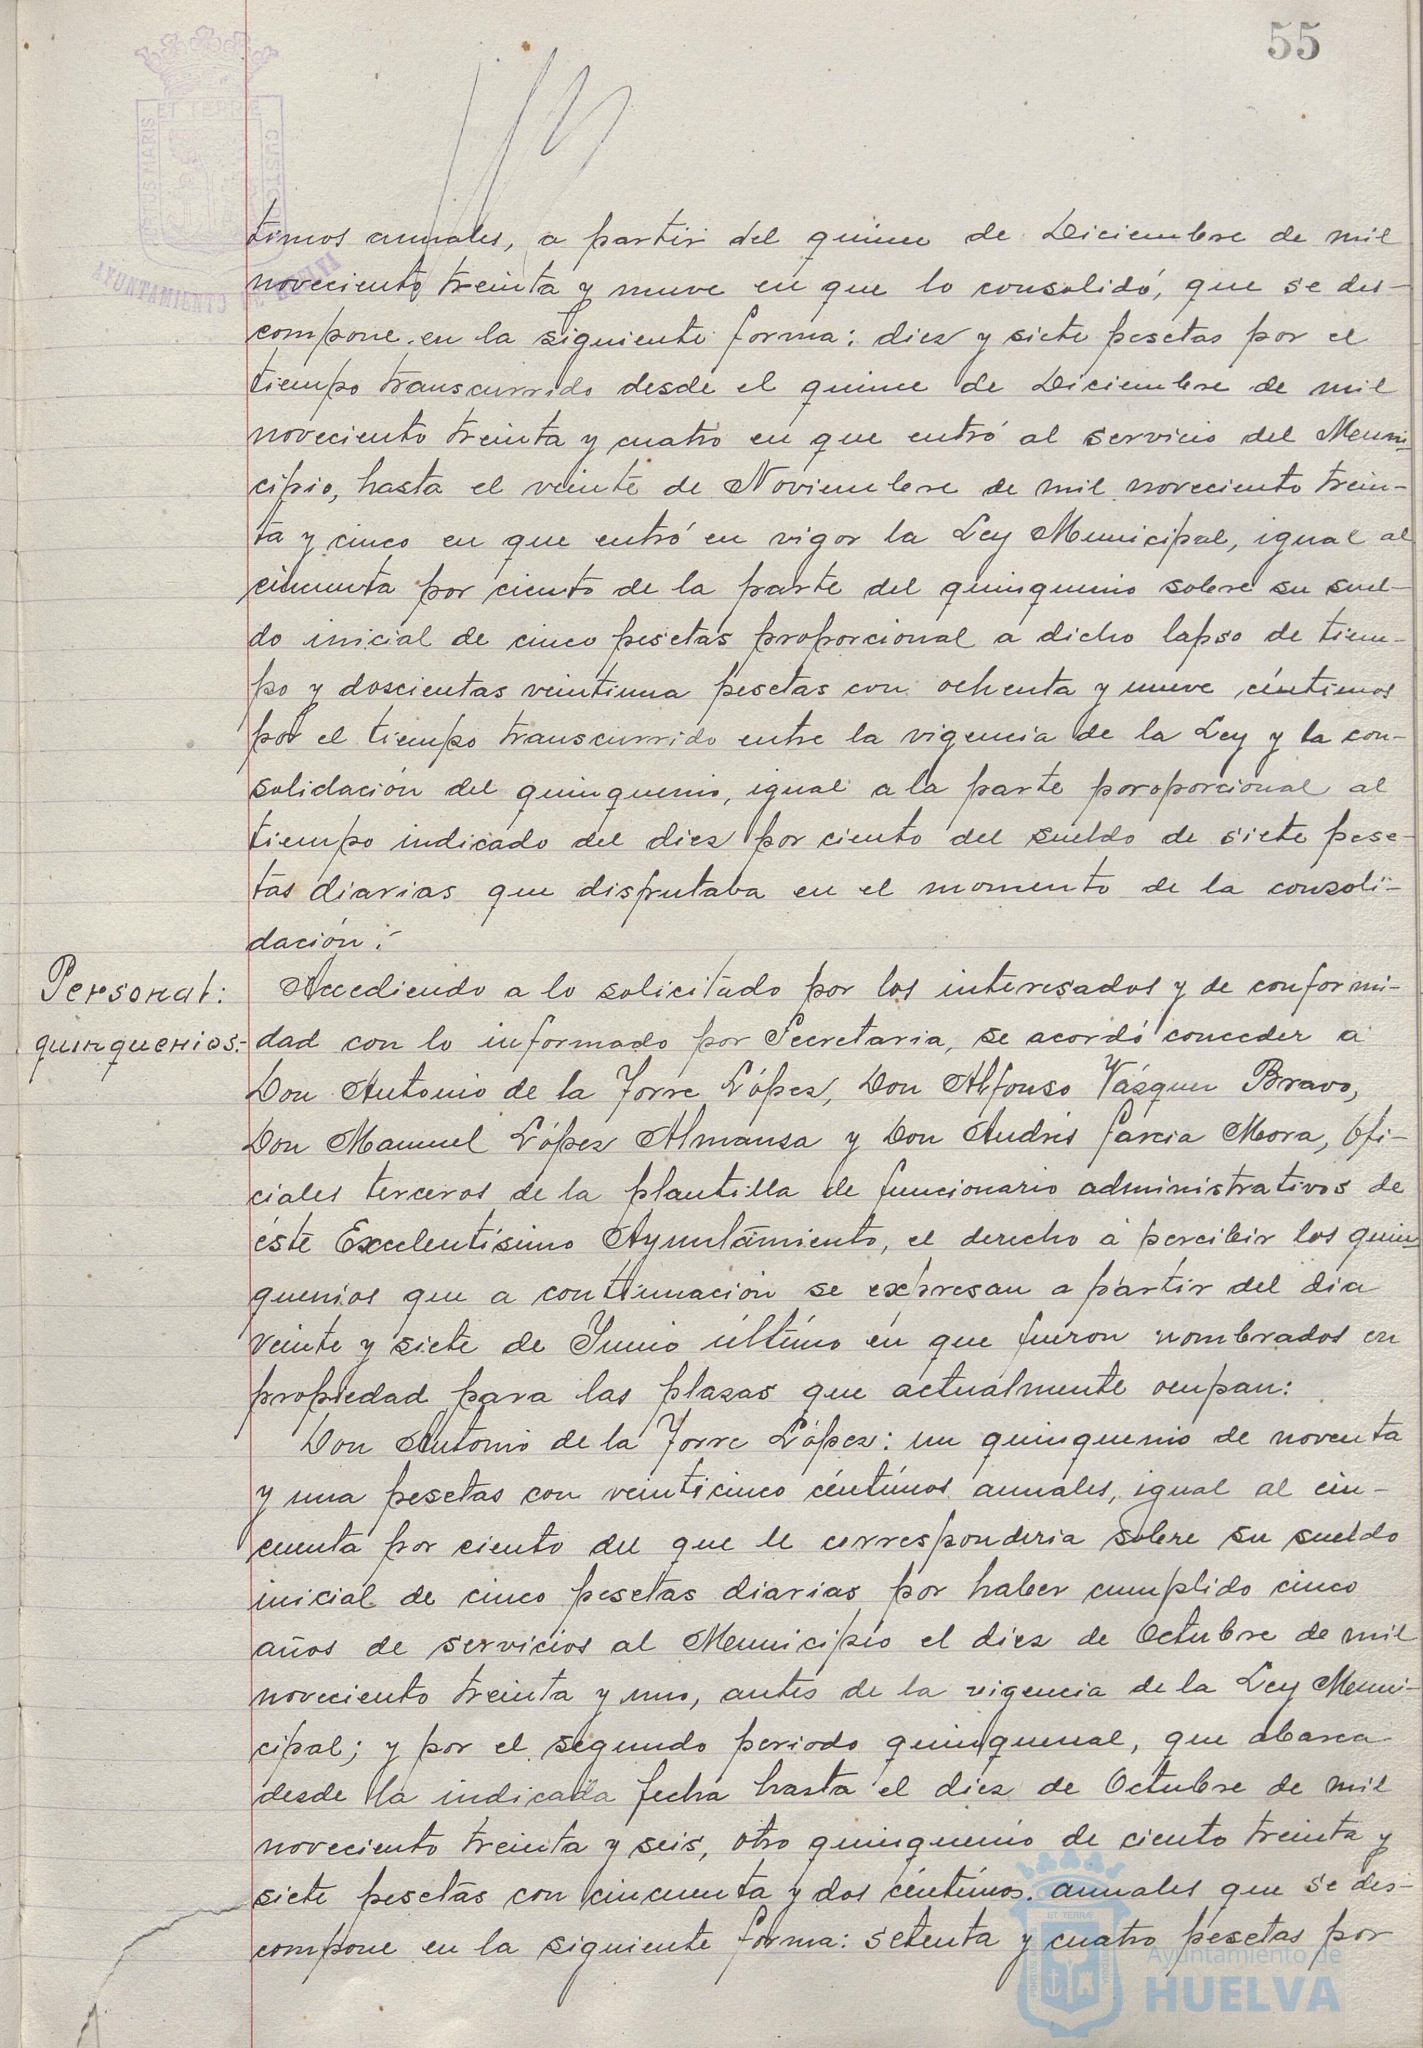 55
PORTUS MARIS ET TERRÆ CUSTODIA
AYUNTAMIENTO DE HUELVA
timos anuales, a partir del quince de Diciembre de mil
noveciento treinta y nueve en que lo consolidó, que se des-
compone en la siguiente forma: diez y siete pesetas por el
tiempo transcurrido desde el quince de Diciembre de mil
noveciento treinta y cuatro en que entró al servicio del Muni-
cipio, hasta el veinte de Noviembre de mil noveciento trein-
ta y cinco en que entró en vigor la Ley Municipal, igual al
cincuenta por ciento de la parte del quinquenio sobre su suel-
do inicial de cinco pesetas proporcional a dicho lapso de tiem-
po y doscientas veintiuna pesetas con ochenta y nueve céntimos
por el tiempo transcurrido entre la vigencia de la Ley y la con-
solidación del quinquenio, igual a la parte poroporcional al
tiempo indicado del diez por ciento del sueldo de siete pese-
tas diarias que disfrutaba en el momento de la consoli-
dación.-
Personal:
quinquenios.-
Accediendo a lo solicitado por los interesados y de conformi-
dad con lo informado por Secretaria, se acordó conceder a
Don Antonio de la Torre López, Don Alfonso Vázquez Bravo,
Don Manuel López Almansa y Don Andrés Garcia Mora, Ofi-
ciales terceros de la plantilla de funcionario administrativos de
éste Excelentísimo Ayuntamiento, el derecho a percibir los quin-
quenios que a continuación se expresan a partir del dia
veinte y siete de Junio último en que fueron nombrados en
propiedad para las plazas que actualmente ocupan:
Don Antonio de la Torre López: un quinquenio de noventa
y una pesetas con veinticinco céntimos anuales, igual al cin-
cuenta por ciento del que le corresponderia sobre su sueldo
inicial de cinco pesetas diarias por haber cumplido cinco
años de servicios al Municipio el diez de Octubre de mil
noveciento treinta y uno, antes de la vigencia de la Ley Muni-
cipal; y por el segundo periodo quinquenal, que abarca
desde la indicada fecha hasta el diez de Octubre de mil
noveciento treinta y seis, otro quinquenio de ciento treinta y
siete pesetas con cincuenta y dos céntimos anuales que se des-
compone en la siguiente forma: setenta y cuatro pesetas por
Ayuntamiento de
HUELVA